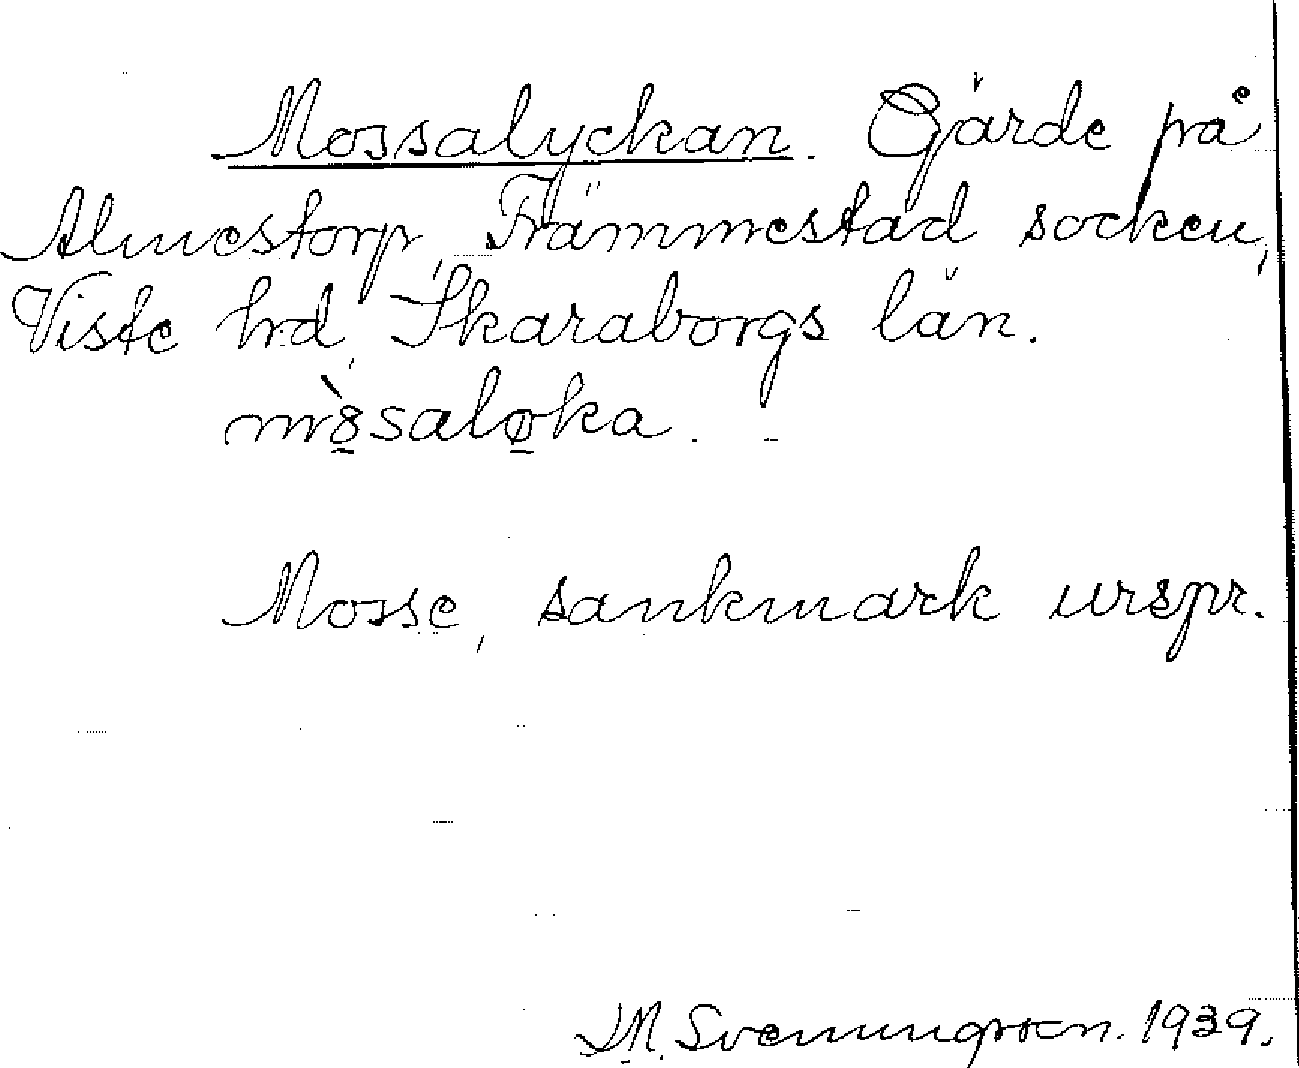 Mossalyckan. Gärde på
Almestorp, Främmestad socken,
Viste hd, Skaraborgs län.
mòsaløka.
Mosse, sankmark urspr.
Svenungsson. 1939.